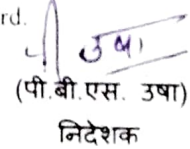 rd.
उषा
(पी.बी.एस. उषा)
निदेशक